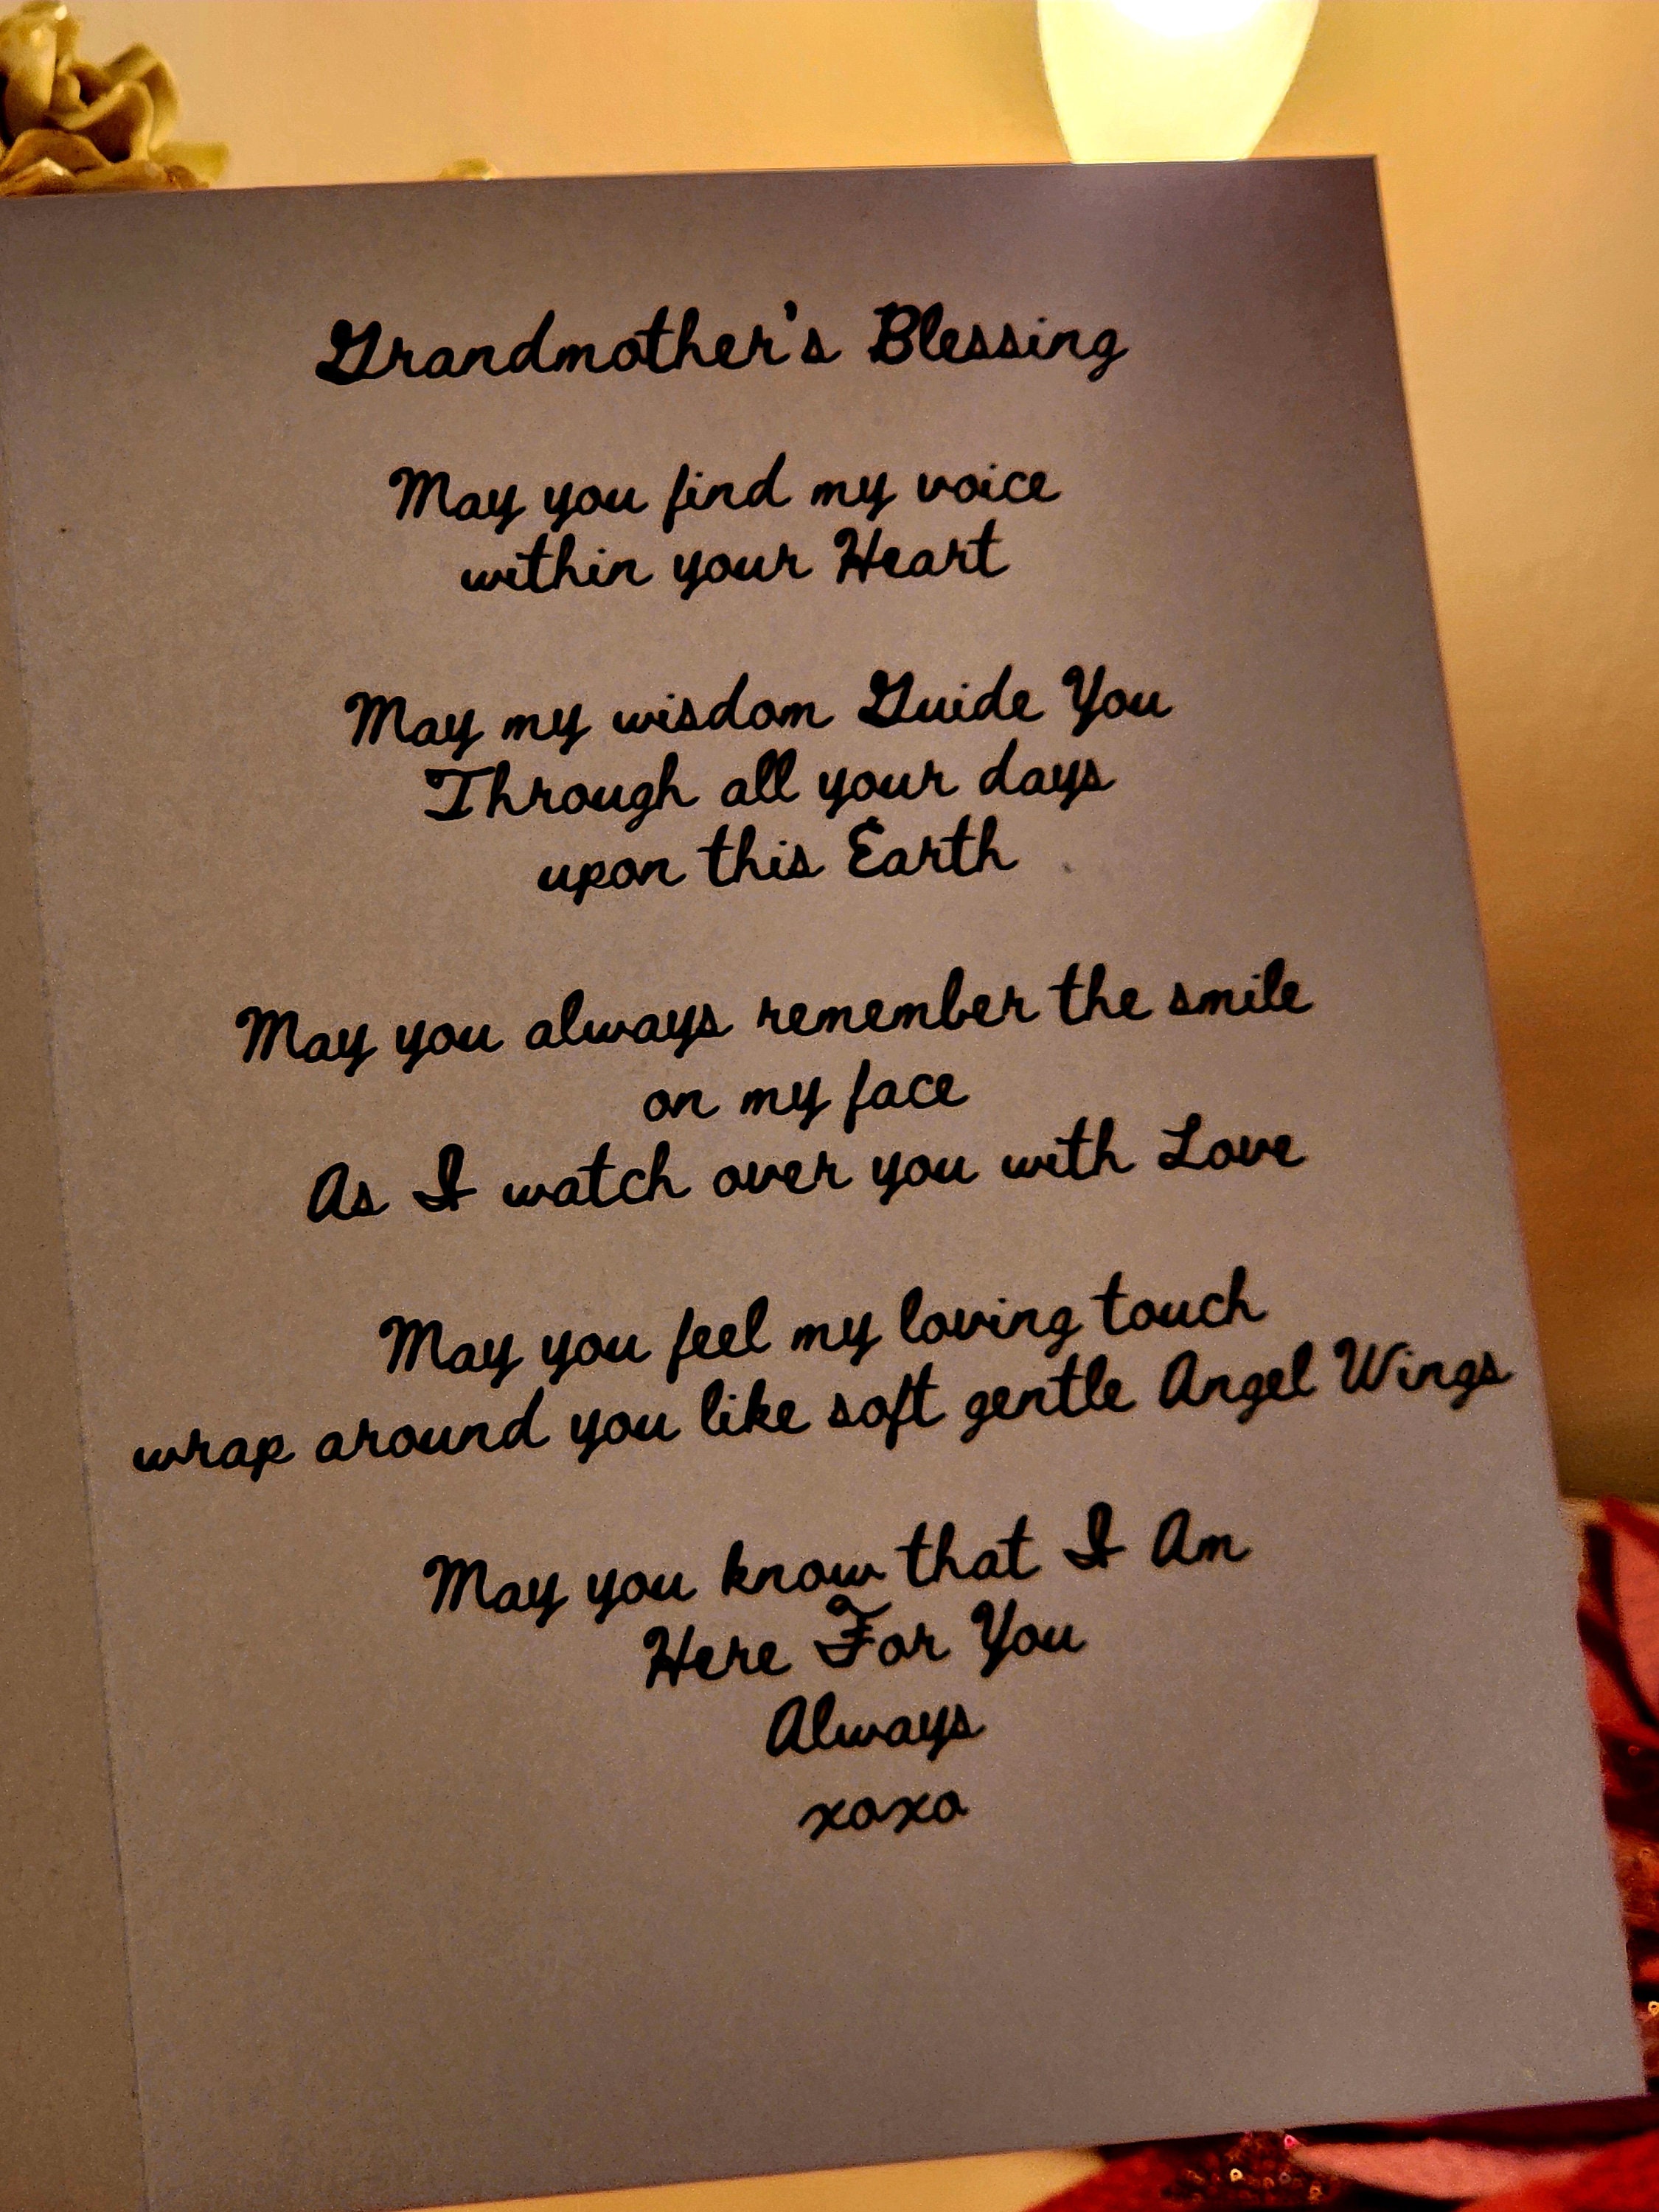 Grandmother's Blessing
May you find my voice
within your Heart
May my wisdom Guide You
Through all your days
upon this Earth
May you always remember the smile
on my face
As I watch over you with Love
May you feel my loving touch
wrap around you like soft gentle Angel Wings
May you know that I Am
Here For You
Always
xoxo